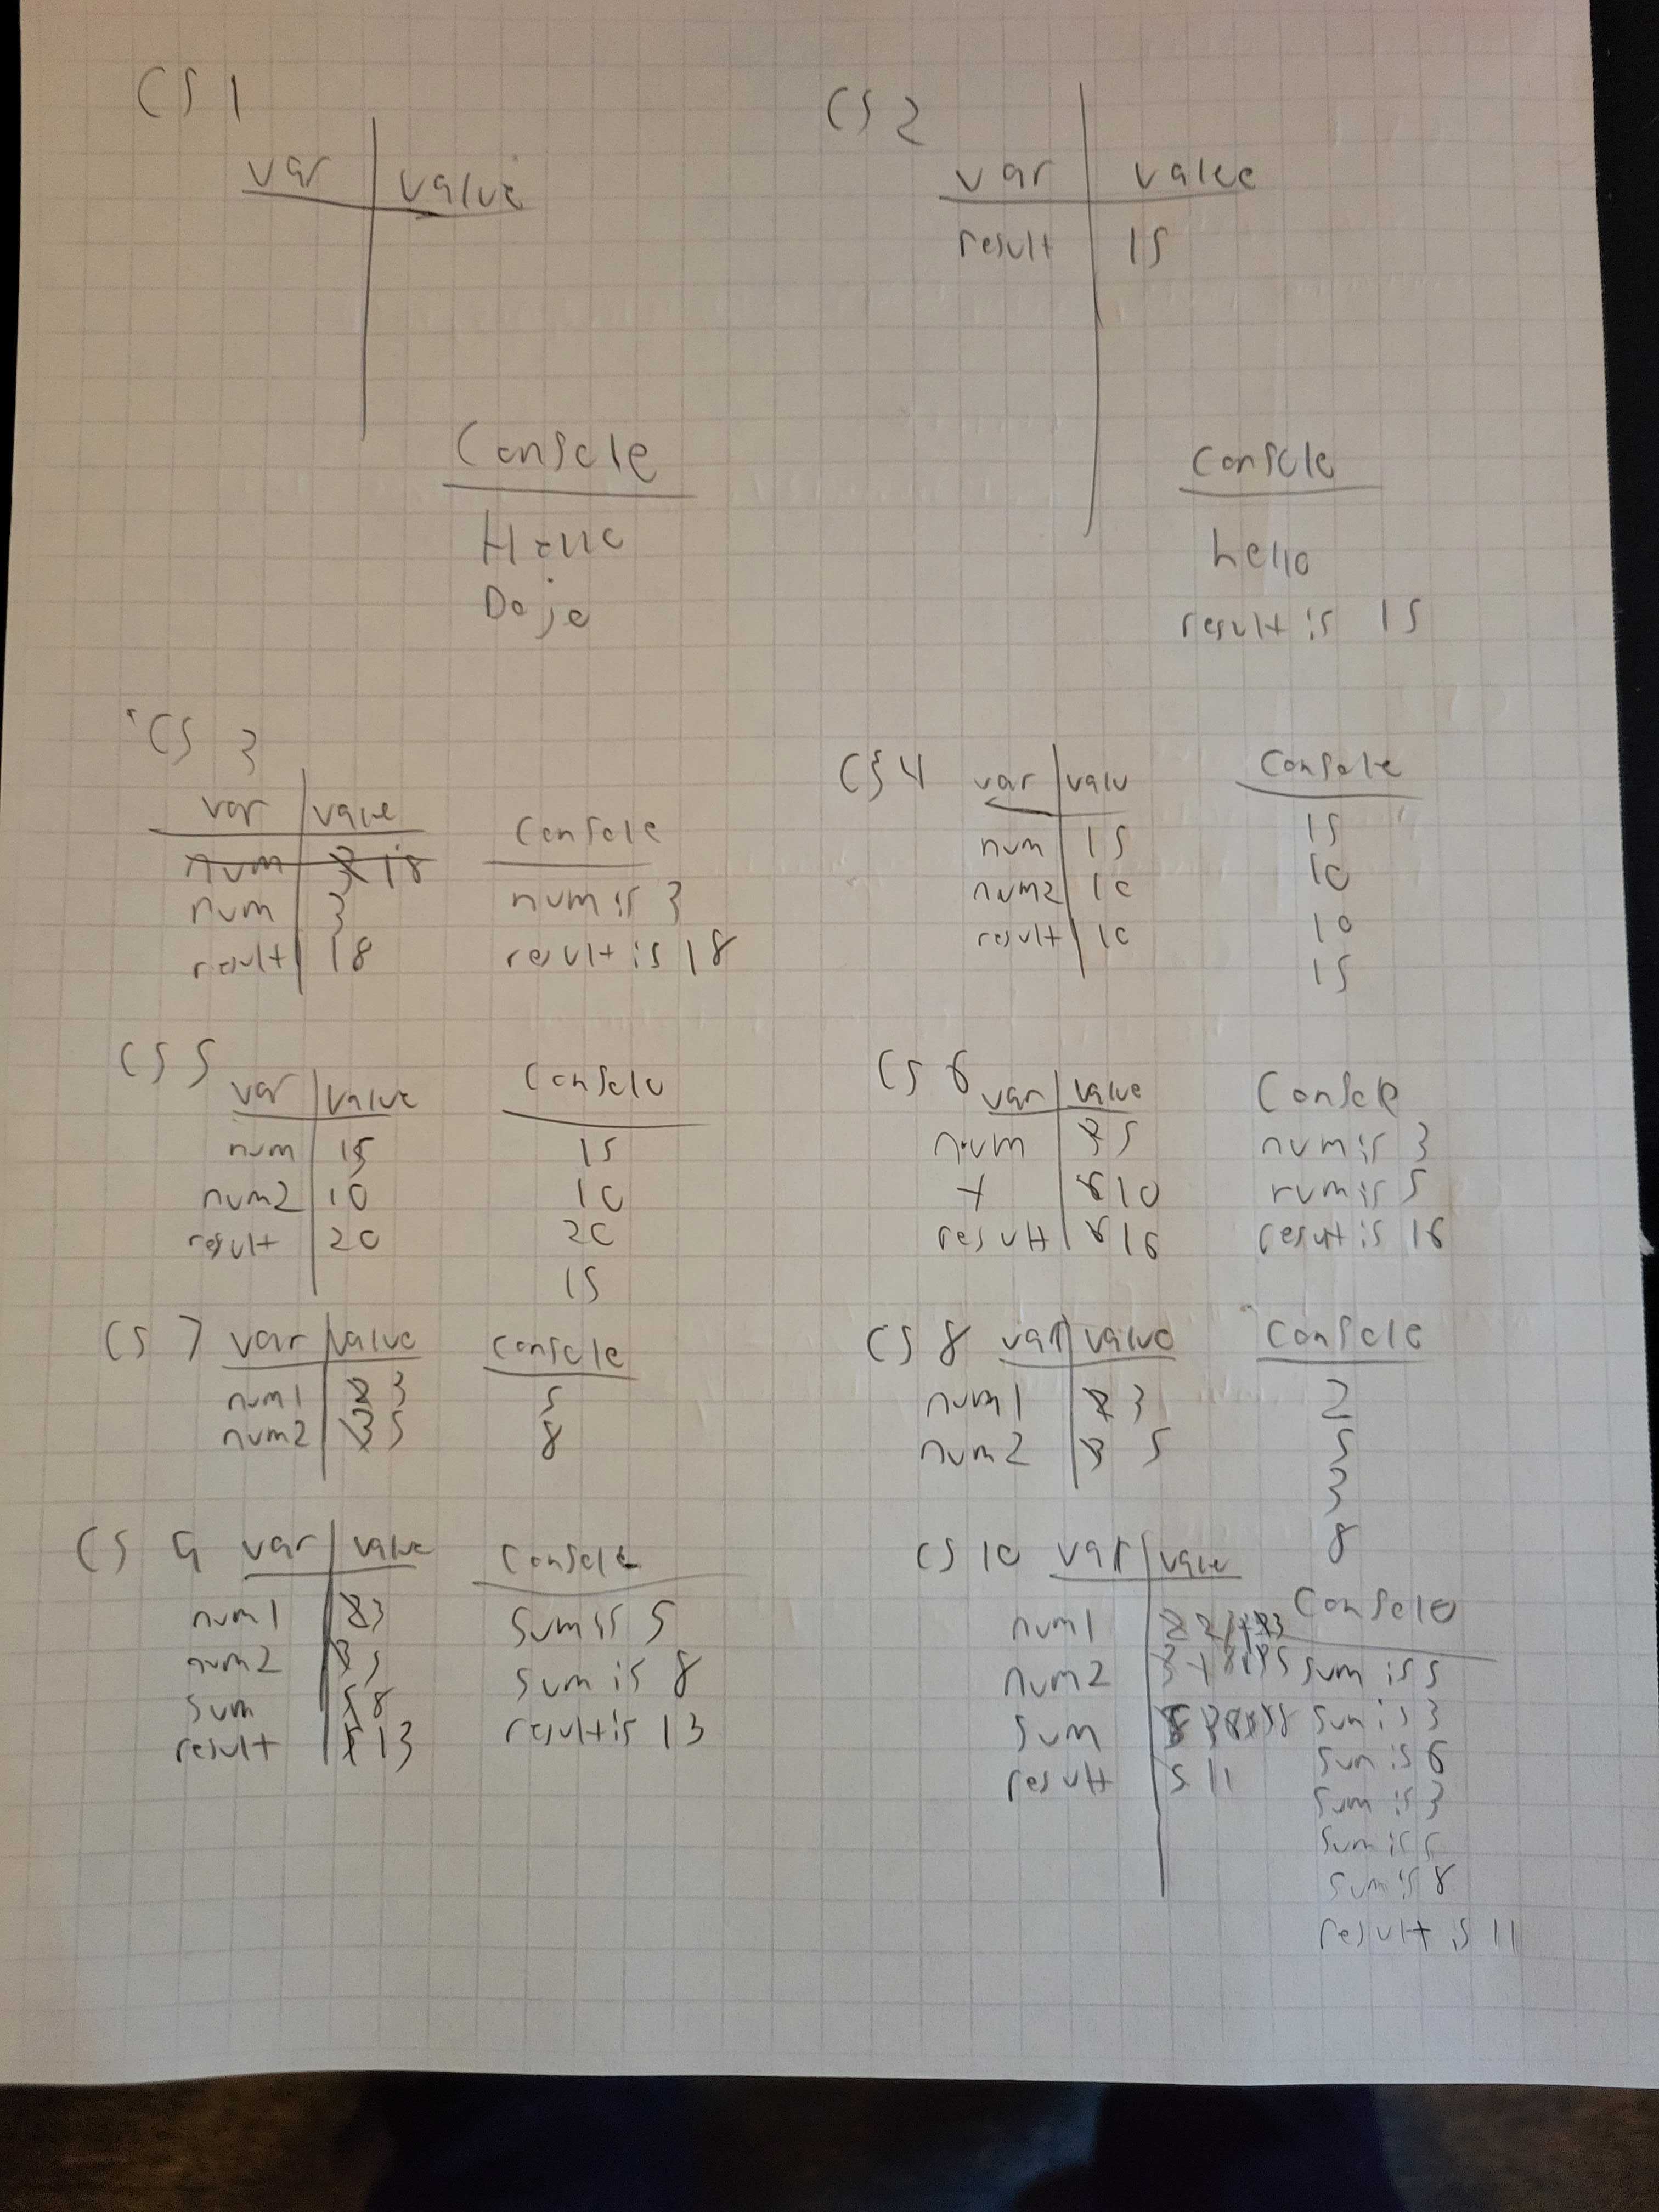 CS 1
var | value
Console
Hello
Dojo
CS 2
var | value
result | 15
Console
hello
result is 15
CS 3
var | value
num 18
num | 3
result | 18
Console
num is 3
result is 18
CS 4
var | valu
num | 15
num2 | 10
result | 10
Console
15
10
10
15
CS 5
var | value
num | 15
num2 | 10
result | 20
Console
15
10
20
15
CS 6
var | value
num | 3 5
6 10
result | 6 16
Console
num is 3
num is 5
result is 16
CS 7
var | value
num1 | 2 3
num2 | 3 5
Console
5
8
CS 8
var | value
num1 | 2 3
num2 | 3 5
Console
2
5
3
8
CS 9
var | value
num1 | 2 3
num2 | 3 5
sum | 5 8
result | 13
Console
sum is 5
sum is 8
result is 13
CS 10
var | value
num1
num2
sum
result | 5 11
Console
sum is 5
sum is 3
sum is 6
sum is 3
sum is 5
sum is 8
result is 11